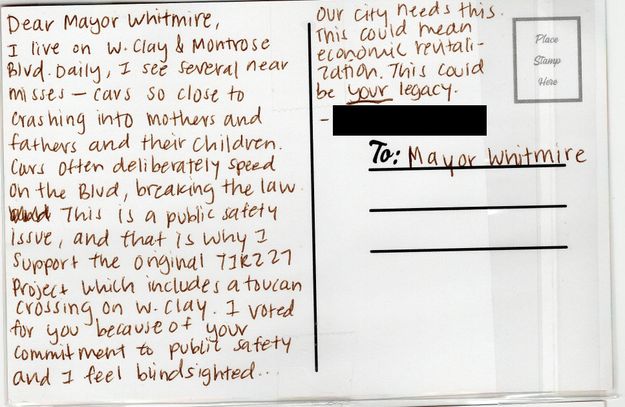 Dear Mayor Whitmire,
I live on W. Clay & Montrose
Blvd. Daily, I see several near
misses — cars so close to
crashing into mothers and
fathers and their children.
Cars often deliberately speed
on the Blvd, breaking the law.
This is a public safety
issue, and that is why I
support the original TIRZ 27
Project which includes a toucan
crossing on W. Clay. I voted
for you because of your
commitment to public safety
and I feel blindsighted...
Our city needs this.
This could mean
economic revitali-
zation. This could
be your legacy.
-
Place
Stamp
Here
To: Mayor Whitmire